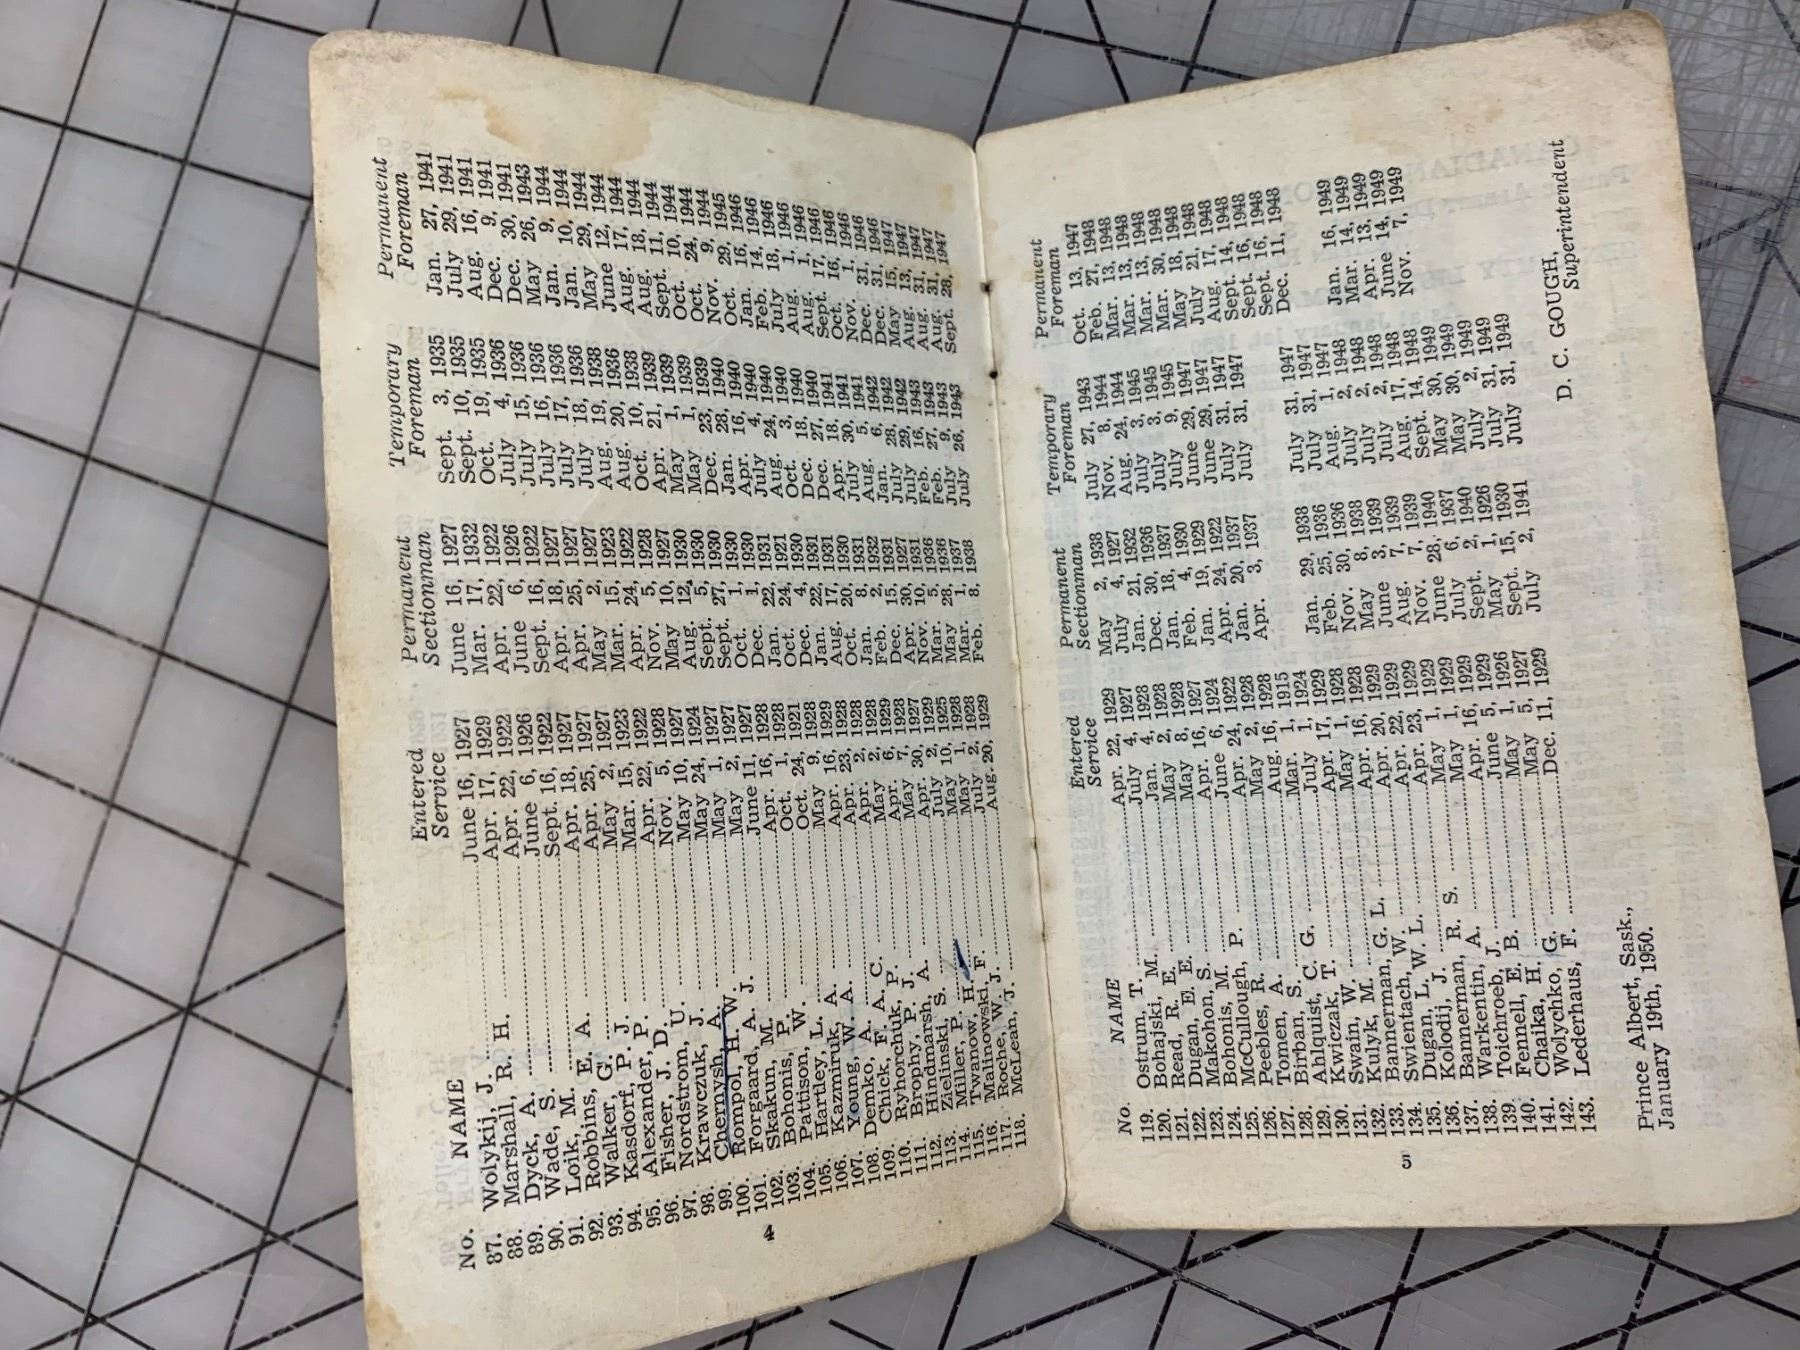 No. NAME Entered Service Permanent Sectionman Temporary Foreman Permanent Foreman
87. Wolykij, J. June 16, 1927 June 16, 1927 Sept. 3, 1935 Jan. 27, 1941
88. Marshall, R. H. Apr. 17, 1929 Mar. 17, 1932 Sept. 10, 1935 July 29, 1941
89. Dyck, A. Apr. 22, 1922 Apr. 22, 1922 Oct. 19, 1935 Aug. 16, 1941
90. Wade, S. June 6, 1926 June 6, 1926 July 4, 1936 Dec. 9, 1941
91. Loik, M. Sept. 16, 1922 Sept. 16, 1922 July 15, 1936 Dec. 30, 1941
92. Robbins, E. A. Apr. 18, 1927 Apr. 18, 1927 July 16, 1936 May 26, 1943
93. Walker, G. Apr. 25, 1927 Apr. 25, 1927 July 17, 1936 Jan. 9, 1944
94. Kasdorf, P. J. May 2, 1927 May 2, 1927 July 18, 1936 Jan. 10, 1944
95. Alexander, P. Mar. 15, 1923 Mar. 15, 1923 Aug. 19, 1938 May 29, 1944
96. Fisher, J. D. Apr. 22, 1922 Apr. 24, 1922 Aug. 20, 1936 June 12, 1944
97. Nordstrom, U. Nov. 5, 1928 Nov. 5, 1928 Oct. 10, 1938 Aug. 17, 1944
98. Krawczuk, J. May 10, 1927 May 10, 1927 Apr. 21, 1939 Aug. 18, 1944
99. Chernysh, A. May 24, 1924 Aug. 12, 1930 May 1, 1939 Sept. 11, 1944
100. Rompol, H. W. May 1, 1927 Sept. 5, 1930 May 1, 1939 Oct. 10, 1944
101. Forgaard, A. J. May 2, 1927 Sept. 27, 1930 Dec. 23, 1939 Oct. 24, 1944
102. Skakun, M. June 11, 1927 Oct. 1, 1930 Jan. 28, 1940 Nov. 9, 1944
103. Bohonis, P. Apr. 16, 1928 Dec. 1, 1930 Apr. 16, 1940 Oct. 29, 1945
104. Pattison, W. Oct. 1, 1928 Jan. 22, 1931 July 4, 1940 Jan. 16, 1946
105. Hartley, L. Oct. 24, 1921 Oct. 24, 1921 Aug. 24, 1940 Feb. 14, 1946
106. Kazmiruk, A. May 9, 1928 Dec. 4, 1930 Oct. 3, 1940 July 18, 1946
107. Young, W. A. Apr. 16, 1929 Jan. 22, 1931 Dec. 18, 1940 Aug. 1, 1946
108. Demko, A. Apr. 23, 1928 Aug. 17, 1931 Dec. 27, 1940 Aug. 1, 1946
109. Chick, F. A. C. Apr. 2, 1928 Oct. 20, 1930 Apr. 18, 1941 Sept. 17, 1946
110. Ryhorchuk, P. May 2, 1929 Jan. 8, 1931 July 30, 1941 Oct. 16, 1946
111. Brophy, P. J. Apr. 6, 1928 Feb. 2, 1932 Aug. 5, 1941 Nov. 1, 1946
112. Hindmarsh, A. May 7, 1927 Dec. 15, 1931 Jan. 6, 1942 Dec. 31, 1946
113. Zielinski, S. Apr. 30, 1929 Apr. 30, 1927 July 28, 1942 Dec. 31, 1946
114. Miller, P. July 2, 1925 Nov. 10, 1931 July 29, 1942 May 15, 1947
115. Twanow, H. May 10, 1928 Mar. 5, 1936 Feb. 16, 1943 Aug. 13, 1947
116. Malinowski, F. May 1, 1928 May 28, 1936 Feb. 27, 1943 Aug. 31, 1947
117. Roche, W. J. July 2, 1928 Mar. 1, 1937 July 9, 1943 Aug. 31, 1947
118. McLean, J. Aug. 20, 1929 Feb. 8, 1938 July 26, 1943 Sept. 28, 1947
4
No. NAME Entered Service Permanent Sectionman Temporary Foreman Permanent Foreman
119. Ostrum, T. Apr. 22, 1929 May 2, 1938 July 27, 1943 Oct. 13, 1947
120. Bohajski, M. July 4, 1927 July 4, 1927 Nov. 8, 1944 Feb. 27, 1948
121. Read, R. E. Jan. 4, 1928 Jan. 21, 1932 Aug. 24, 1944 Mar. 13, 1948
122. Dugan, E. E. May 2, 1928 Dec. 30, 1936 July 3, 1945 Mar. 13, 1948
123. Makohon, S. May 8, 1928 Jan. 18, 1937 July 3, 1945 Mar. 13, 1948
124. Bohonis, M. Apr. 16, 1927 Feb. 4, 1930 July 9, 1945 Mar. 30, 1948
125. McCullough, P. June 6, 1924 Jan. 19, 1929 June 29, 1947 May 18, 1948
126. Peebles, R. Apr. 24, 1922 Apr. 24, 1922 June 29, 1947 July 21, 1948
127. Tomen, A. May 2, 1928 Jan. 20, 1937 July 31, 1947 Aug. 17, 1948
128. Birban, S. Aug. 16, 1928 Apr. 3, 1937 July 31, 1947 Sept. 14, 1948
129. Ahlquist, C. G. Mar. 1, 1915 Sept. 16, 1948
130. Kwiczak, T. July 1, 1924 Sept. 16, 1948
131. Swain, W. Apr. 17, 1929 Jan. 29, 1938 July 31, 1947 Dec. 11, 1948
132. Kulyk, M. May 1, 1928 Feb. 25, 1936 July 31, 1947
133. Bannerman, G. L. Apr. 16, 1928 Nov. 30, 1936 Aug. 1, 1947
134. Swientach, W. Apr. 20, 1929 May 8, 1938 July 2, 1948 Jan. 16, 1949
135. Dugan, L. W. L. Apr. 22, 1929 June 3, 1939 July 2, 1948 Mar. 14, 1949
136. Kolodij, J. Apr. 23, 1929 Aug. 7, 1939 July 2, 1948 Apr. 13, 1949
137. Bannerman, R. S. May 1, 1929 Nov. 7, 1939 Aug. 17, 1948 June 14, 1949
138. Warkentin, A. May 1, 1929 June 28, 1940 Sept. 14, 1948 Nov. 7, 1949
139. Toichroeb, J. Apr. 16, 1929 July 6, 1937 May 30, 1949
140. Fennell, E. B. June 5, 1929 Sept. 2, 1940 May 30, 1949
141. Chaika, H. May 1, 1926 May 1, 1926 July 2, 1949
142. Wolychko, G. May 5, 1927 Sept. 15, 1930 July 31, 1949
143. Lederhaus, F. Dec. 11, 1929 July 2, 1941 July 31, 1949
D. C. GOUGH,
Superintendent
Prince Albert, Sask.,
January 19th, 1950.
5